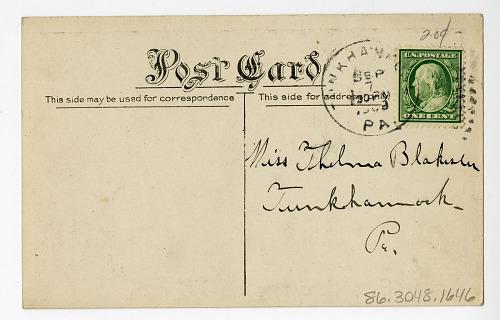 20¢
Post Card
This side may be used for correspondence
This side for address only
TUNKHANNOCK
SEP
7
PA.
U.S. POSTAGE
ONE CENT
Miss Thelma Blakeslee
Tunkhannock
Pa.
86.3048.1646